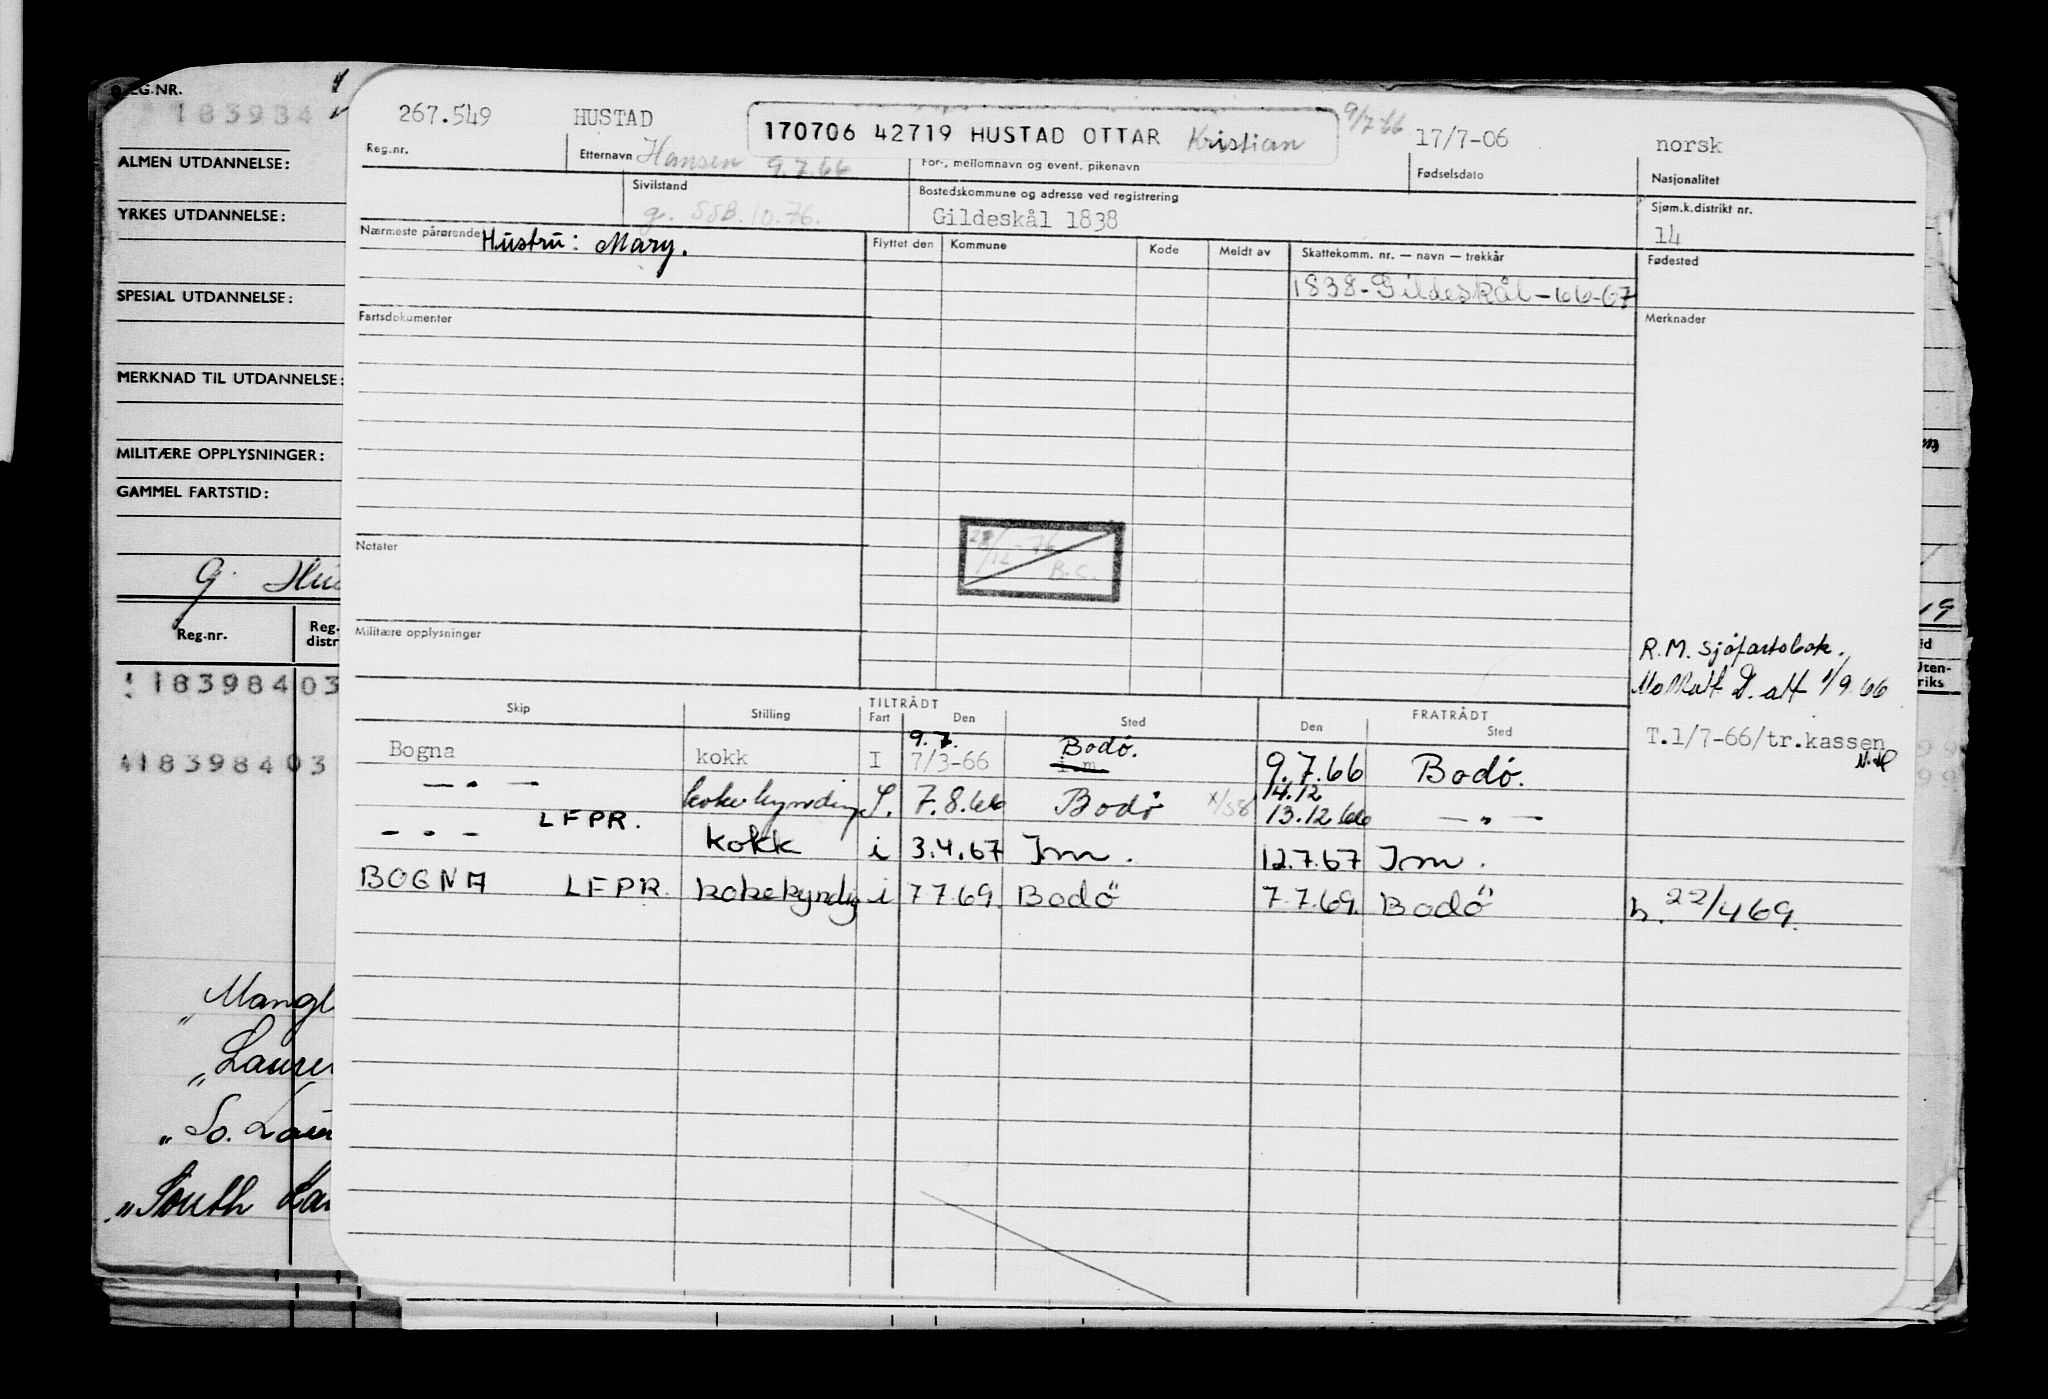 267.549 HUSTAD 170706 42719 HUSTAD OTTAR Kristian 9/7-66 17/7-06 norsk
Reg.nr. Etternavn Hansen 9.7.66 For-, mellomnavn og event. pikenavn Fødselsdato Nasjonalitet
Sivilstand Bostedskommune og adresse ved registrering Sjøm.k.distrikt nr.
g. SSB.10.76. Gildeskål 1838 14
Nærmeste pårørende Hustru: Mary. Flyttet den Kommune Kode Meldt av Skattekomm. nr. — navn — trekkår Fødested
1838-Gildeskål-66-67
Fartsdokumenter Merknader
28/12-76
B.C.
Notater
Militære opplysninger
R.M. Sjøfartsbok.
1/9.66
Skip Stilling TILTRÅDT FRATRÅDT
Fart Den Sted Den Sted
T.1/7-66/tr.kassen
9.7. Bodø.
Bogna kokk I 7/3-66 i.m. 9.7.66 Bodø.
14.12
— " — kokekyndig S. 7.8.66 Bodø x/58 13.12.66 — " —
- " - LFPR. kokk i 3.4.67 Jm. 12.7.67 Jm.
BOGNA LFPR. kokekyndig i 7.7.69. Bodö 7.7.69. Bodö h. 22/4 69.
REG.NR.
183984
ALMEN UTDANNELSE:
YRKES UTDANNELSE:
SPESIAL UTDANNELSE:
MERKNAD TIL UTDANNELSE:
MILITÆRE OPPLYSNINGER:
GAMMEL FARTSTID:
G. Hus
Reg.nr. Reg. distr
183984 03
4183984 03
" Mangl
" Laure
" So. Lau
" South
19
id
Uten-
riks